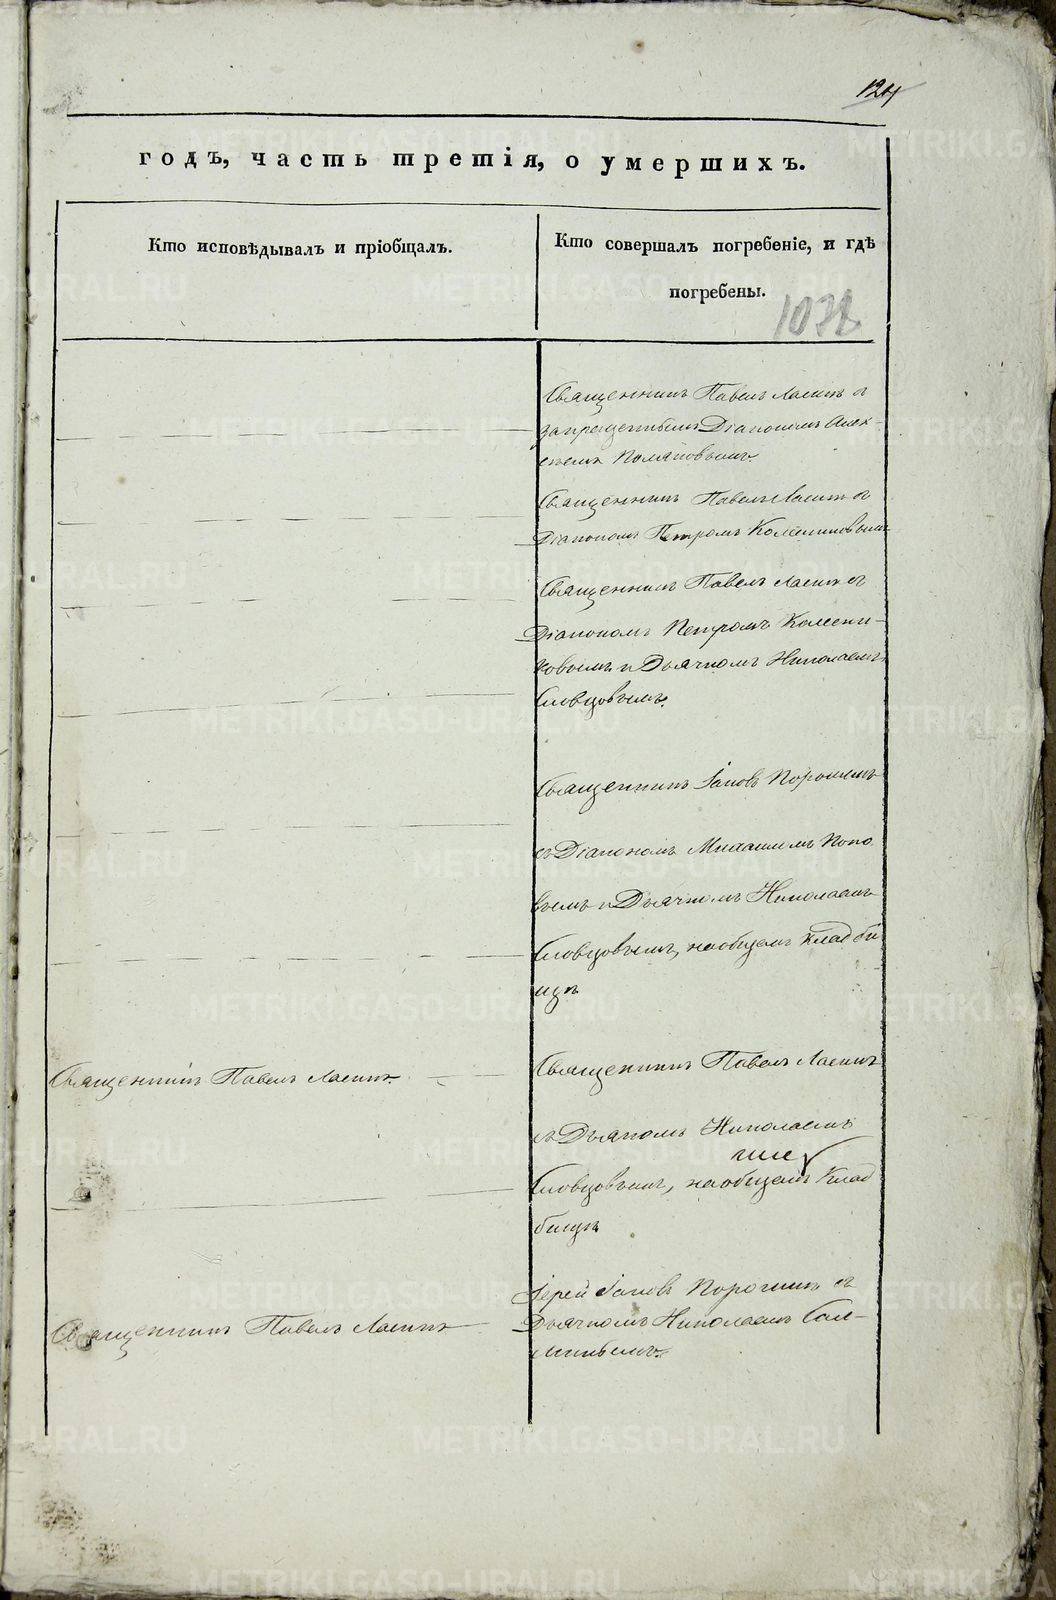 124
годъ, часть третія, о умершихъ.
Кто исповѣдывалъ и пріобщалъ.
Кто совершалъ погребеніе, и гдѣ
погребены.
1038
Священникъ Павелъ Ласинъ съ
Діакономъ Алек-
Священникъ Павелъ Ласинъ съ
Діакономъ Петромъ
Священникъ Павелъ Ласинъ съ
Діакономъ Петромъ
и Дьячкомъ Николаемъ
Словцовымъ.
Священникъ Іаковъ Порошинъ
съ Діакономъ Михаиломъ Попо
вымъ и Дьячкомъ Николаемъ
Словцовымъ, на общемъ кладби
щѣ
Священникъ Павелъ Ласинъ
Священникъ Павелъ Ласинъ
съ Николаемъ
Словцовымъ, на общемъ Клад
бищѣ
Іерей Іаковъ Порошинъ съ
Священникъ Павелъ Ласинъ
Дьячкомъ Николаемъ
METRIKI.GASO-URAL.RU